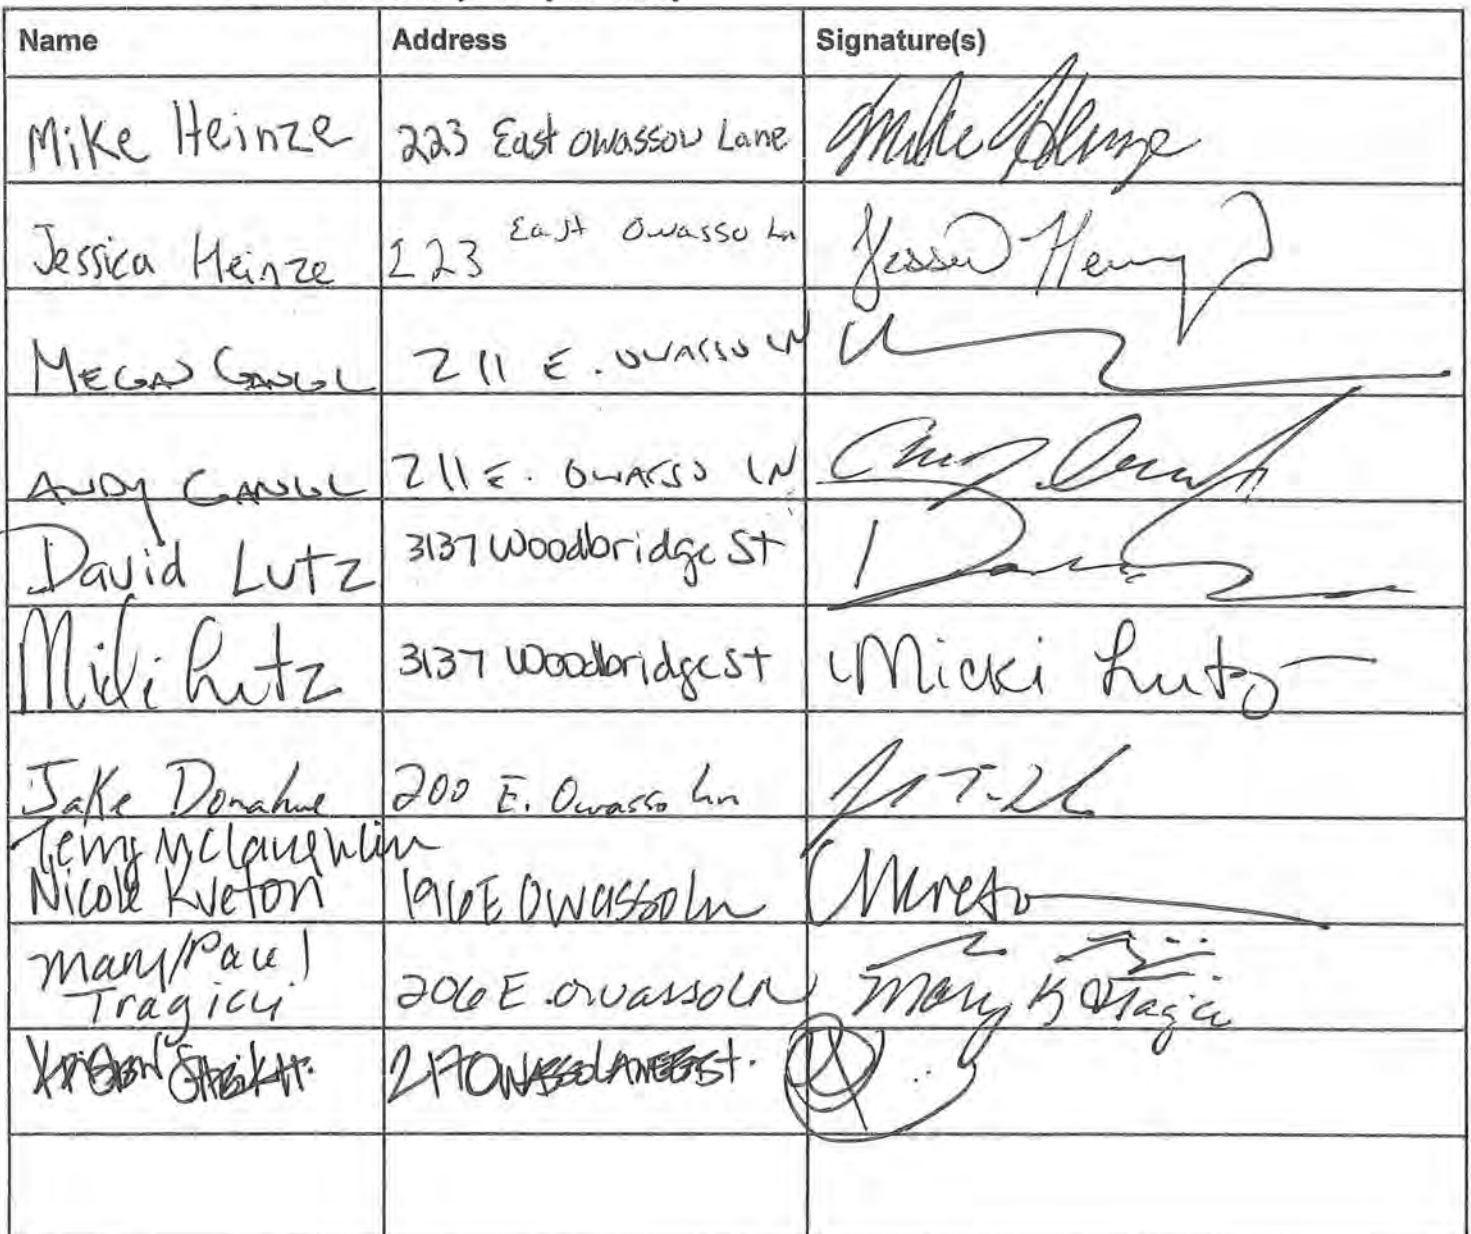 Name Address Signature(s)
Mike Heinze 223 East Owassow Lane Mike Heinze
Jessica Heinze 223 East Owasso Ln
MEGAN GANGL 211 E. OWASSO LN
ANDY GANGL 211 E. OWASSO LN
David Lutz 3137 Woodbridge St
Miki Lutz 3137 Woodbridge St Micki Lutz
Jake Donahue 200 E. Owasso Ln
Terry McLaughlin
Nicole Kveton 196 E Owasso Ln
Mary/Paul
Tragiai 206 E. Owasso LN Mary K
217 OWASSO LANE EAST.